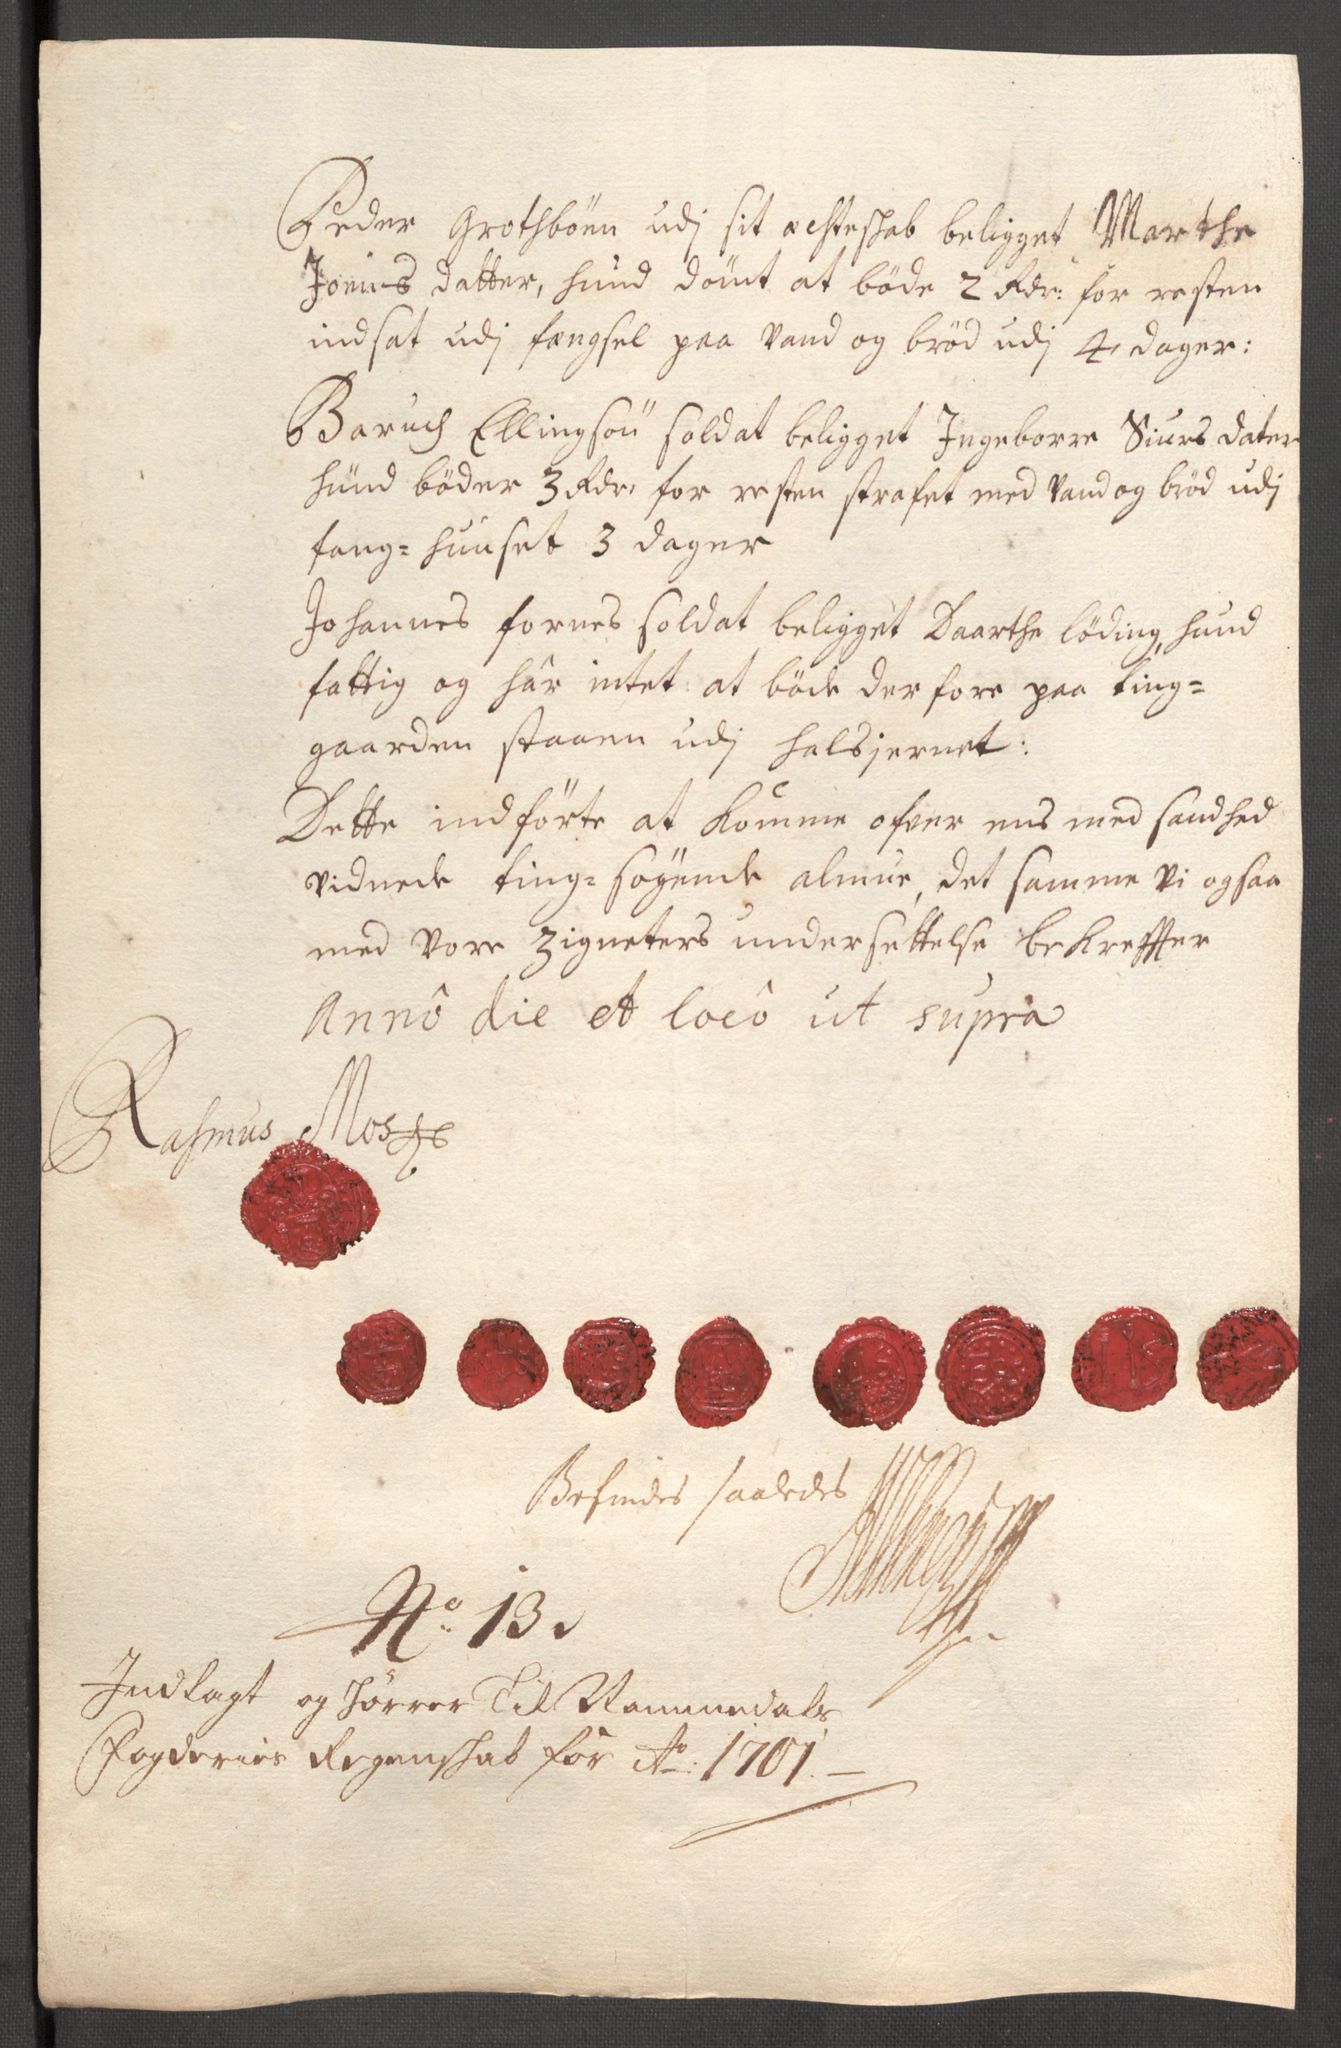 Peder Grothböen udj sit ächteskab beligget Marthe
Jonnes datter, hund dömt at böde 2 Rdr: for resten
indsat udj fængsel paa vand og bröd udj 4 dager:
Baruch Ellingsön soldat beligget Ingeborre Siurs dater
hund böder 3 Rdr: for resten strafet med vand og bröd udj
fang= huuset 3 dager
Johannes fornes soldat beligget Daarthe löding, hund
fattig og hâr intet at böde derfore paa ting=
gaarden staaen udj halsjernet:
Dette indförte at komme ofver ens med sandhed
vidnede ting= sögende almue, det samme vi ogsaa
med vore Zigneters undersettelse bekreffter
Annô die et locô ut supra
Rasmus
Befindes saaledes
No: 13.
Indlagt og hörrer Til Nammedals
Fogderies Regenskab for Ao: 1701.